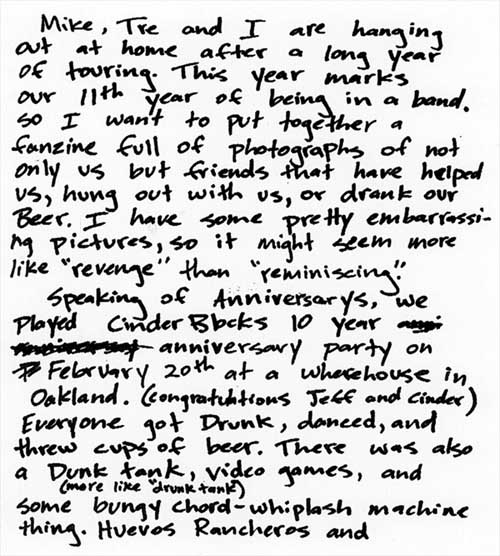 Mike, Tre and I are hanging
out at home after a long year
of touring. This year marks
our 11th year of being in a band.
so I want to put together a
fanzine full of photographs of not
only us but friends that have helped
us, hung out with us, or drank our
Beer. I have some pretty embarrassi-
ng pictures, so it might seem more
like "revenge" than "reminiscing."
Speaking of Anniversarys, we
Played Cinder Blocks 10 year
anniversary party on
February 20th at a wherehouse in
Oakland. (congratuhtions Jeff and Cinder)
Everyone got Drunk, danced, and
threw cups of beer. There was also
a Dunk tank, video games, and
(more like "drunk tank")
some bungy chord-whiplash machine
thing. Huevos Rancheros and